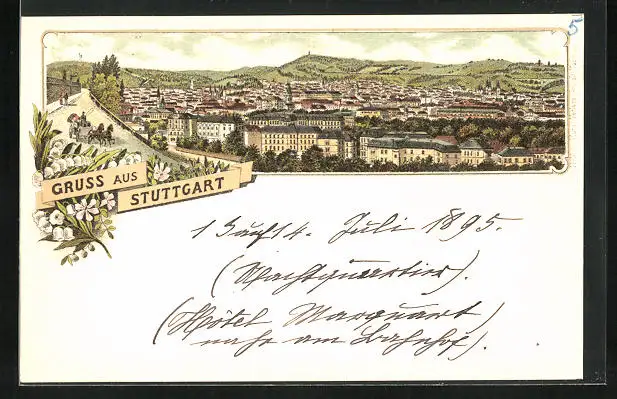 5
GRUSS AUS
STUTTGART
14. Juli 1895.
(Nachtquartier).
(Hôtel Marquart
nahe am Bahnhof).